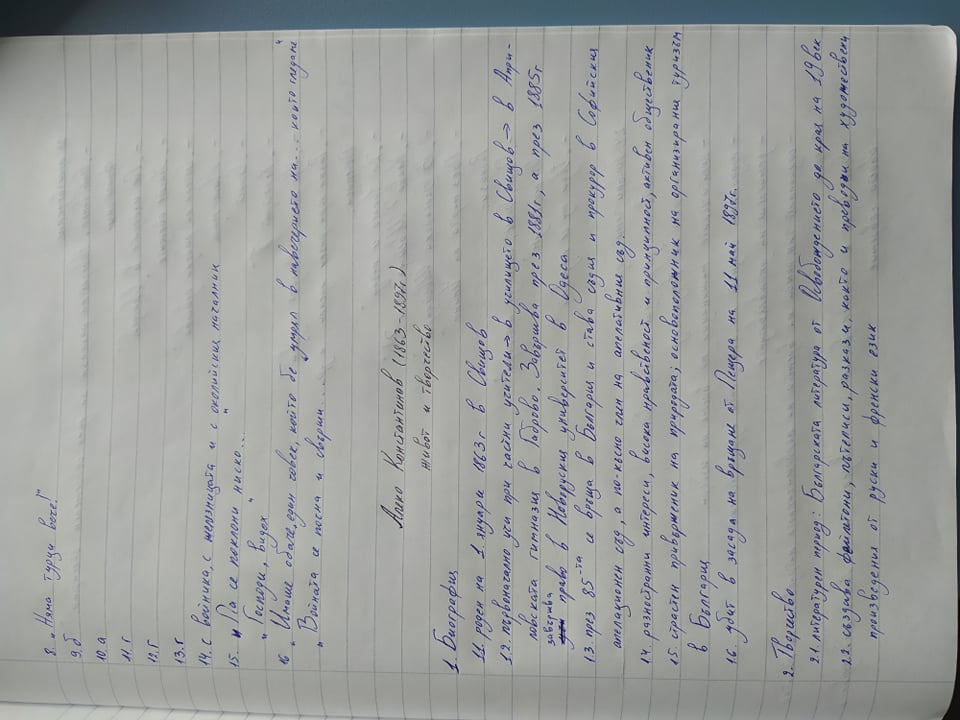 8. „Няма турци вече!"
9. б
10. а
11. г
12. г
13. г
14. с войника, с шопзницата и с околийския началник
15. „Па се поклони ниско..."
„Господи, видох"
16 „Имаше обаче един човек, който бе умрял в навечерието на... които гледат"
„Войната се посна и свърши...
Алеко Константинов (1863-1897г)
живот и творчество
1. Биография
1.1. роден на 1 януари 1863г в Свищов
1.2. първоначално учи при частни учители → в училището в Свищов → в Апри-
ловската гимназия в Габрово. Завършва през 1881г, а през 1885г
завършва право в Новоруския университет в Одеса
1.3. през 85-та се връща в България и става съдия и прокурор в Софийския
апелационен съд, а по-късно член на апелативния съд.
1.4. разностранни интереси, висока нравственост и принципност, активен общественик
1.5. страстен привърженик на природата; основоположник на организирания туризъм
в България
1.6 убит в засада на връщане от Пещера на 11 май 1897г.
2. Творчество
2.1. литературен период: Българската литература от Освобождението до края на 19 век
2.2. създава фейлетони, пътеписи, разкази, както и преводи на художествени
произведения от руски и френски език